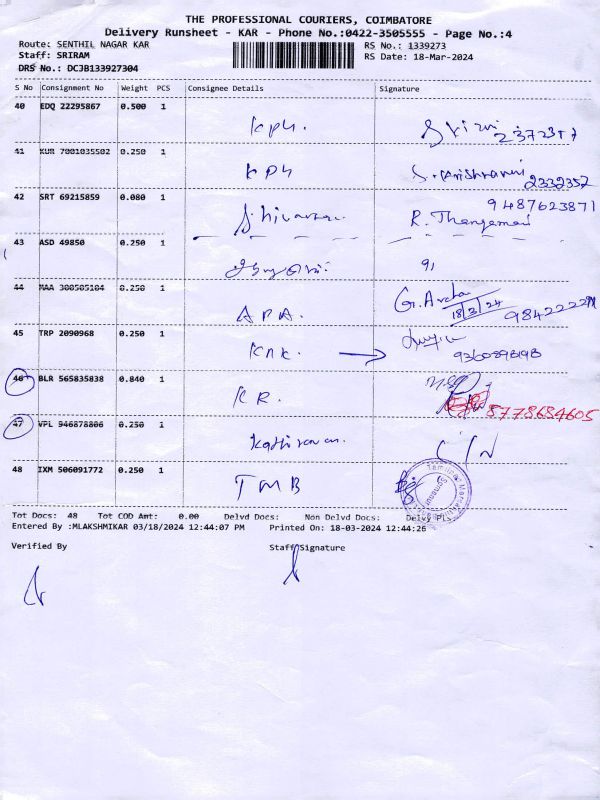 THE PROFESSIONAL COURIERS, COIMBATORE
Delivery Runsheet - KAR - Phone No.:0422-3505555 - Page No.:4
Route: SENTHIL NAGAR KAR
RS No.: 1339273
Staff: SRIRAM
RS Date: 18-Mar-2024
DRS No.: DCJB133927304
S No Consignment No Weight PCS Consignee Details Signature
40 EDQ 22295867 0.500 1
kph. 2372317
41 KUR 7001035502 0.250 1
kph 2332352
42 SRT 69215859 0.080 1
9487623871
R. Thangamani
43 ASD 49850 0.250 1
44 MAA 300505104 0.250 1
APA. G. 18/3/24
45 TRP 2090968 0.250 1
KNK. 9360898198
46 BLR 565835838 0.840 1
KR. 8778684605
47 VPL 946878806 0.250 1
Kathiravan.
48 IXM 506091772 0.250 1
TMB
Tot Docs: 48 Tot COD Amt: 0.00 Delvd Docs: Non Delvd Docs: Delvy Pls:
Entered By :MLAKSHMIKAR 03/18/2024 12:44:07 PM Printed On: 18-03-2024 12:44:26
Verified By Staff Signature